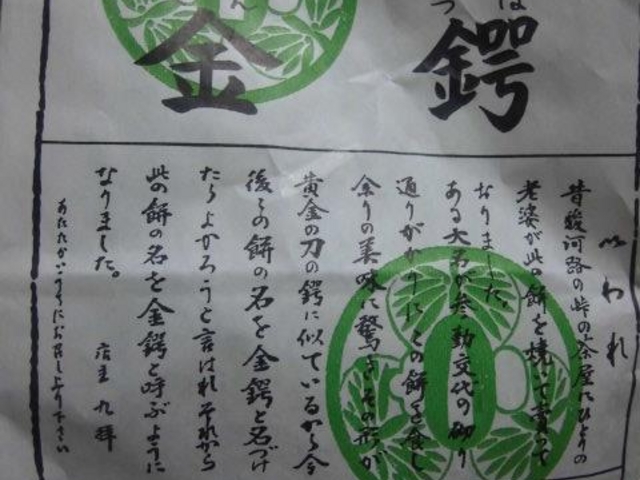 つば
金鍔
いわれ
昔駿河路の峠の茶屋にひとりの
老婆が此の餅を焼いて賣って
おりました。
ある大名が参勤交代の砌り
通りがかりにこの餅を食し
余りの美味に驚きその形が
黄金の刀の鍔に似ているから今
後この餅の名を金鍔と名づけ
たらよかろうと言はれそれから
此の餅の名を金鍔と呼ぶように
なりました。
店主 九拝
あたたかいうちにお召し上り下さい